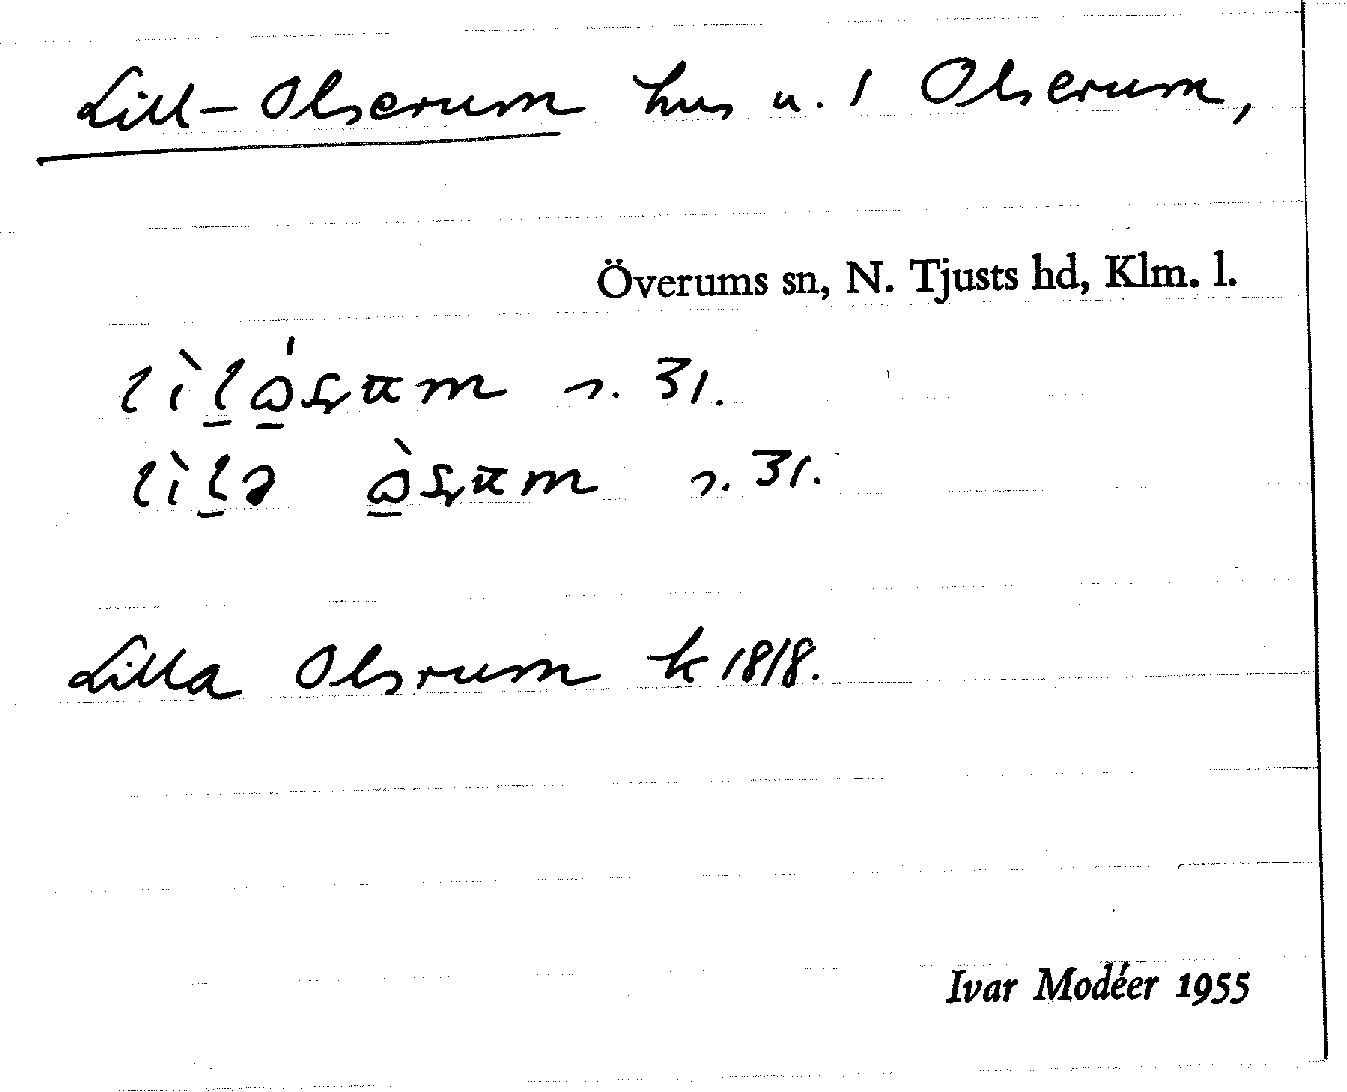 Lill-Olserum hus u. 1 Olserum,
Överums sn, N. Tjusts hd, Klm. l.
s. 31.
s. 31.
Lilla Olsrum k 1818.
Ivar Modéer 1955